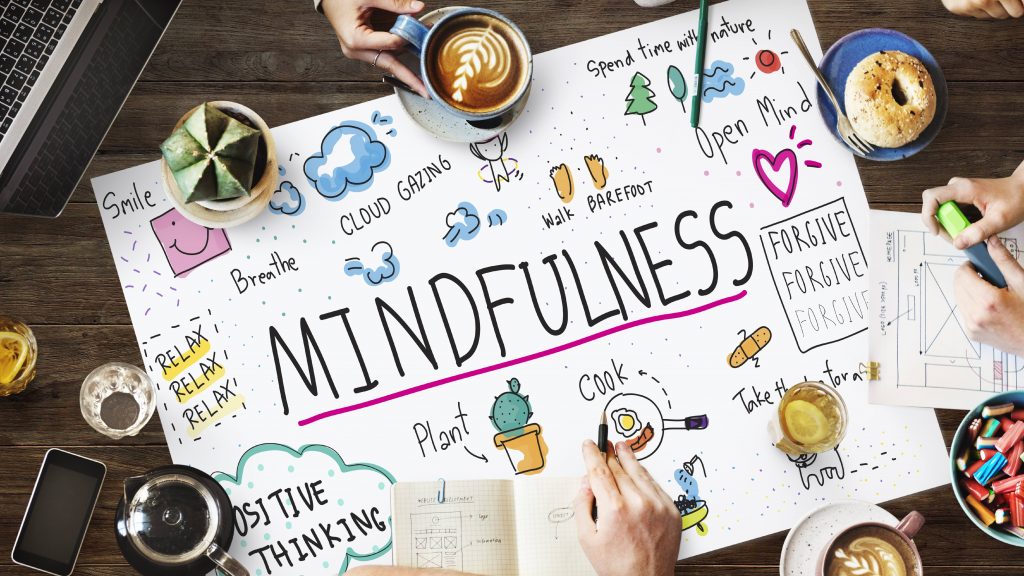 Spend time with nature
Open Mind
Smile
CLOUD GAZING
Walk BAREFOOT
Breathe
MINDFULNESS
FORGIVE
FORGIVE
FORGIVE
RELAX
RELAX
RELAX!
Cook
Plant
Take the for a
OSITIVE
THINKING
HOMEPAGE